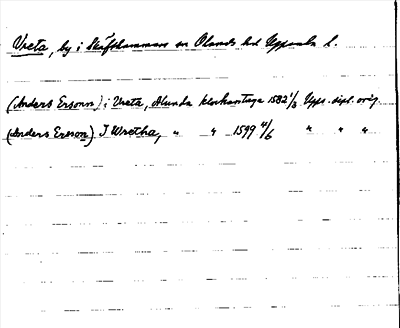 Vreta, by i Skäfthammars sn Olands hd Uppsala l.
(Anders Ersonn) i Vreta, Alunda klockantaga 1582 1/3 Upps. dipl. orig.
(Anders Ersson) I Wretha, " " 1599 4/6 " " "